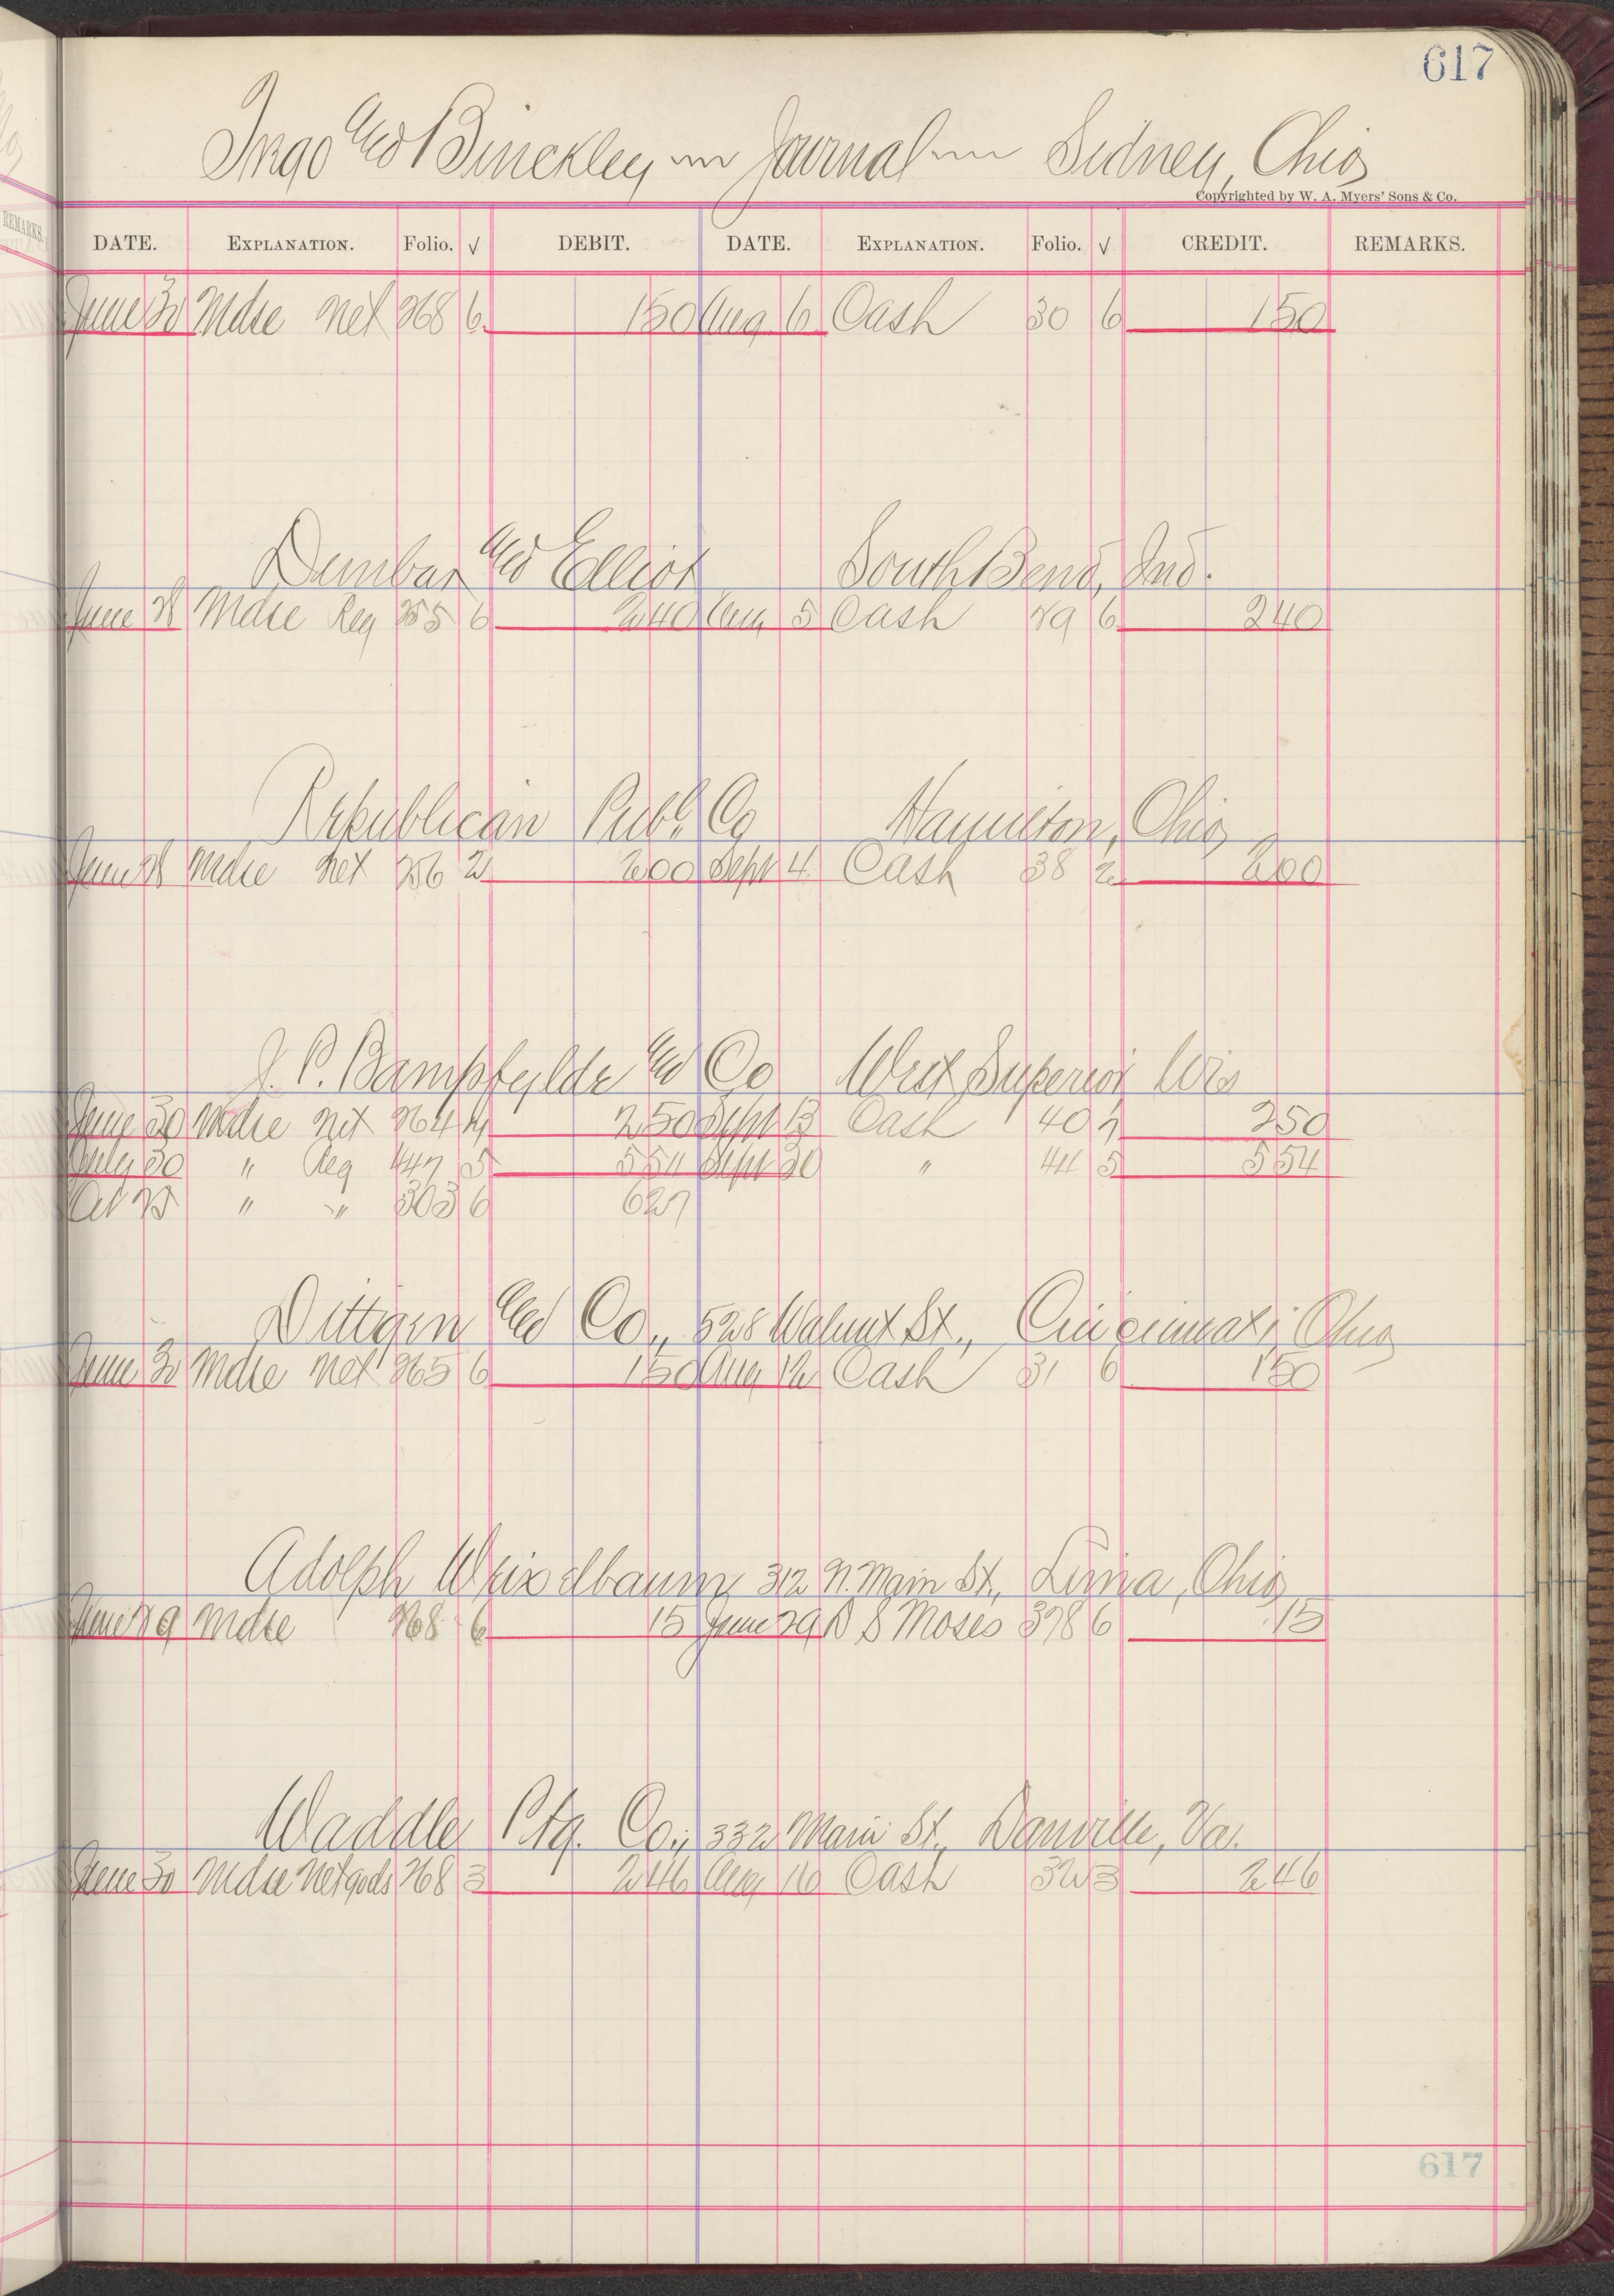 617
Binckley Journal Sidney, Ohio
Copyrighted by W. A. Myers' Sons & Co.
DATE. EXPLANATION. Folio. √ DEBIT. DATE. EXPLANATION. Folio. √ CREDIT. REMARKS.
REMARKS.
June 30 Mdse Net 268 6 150 Aug 6 Cash 30 6 150
Dunbar and Elliot South Bend, Ind.
June 28 Mdse Reg 255 6 240 Aug 5 Cash 29 6 240
Republican Publ. Co Hamilton, Ohio
June 28 Mdse Net 256 2 200 Sept 4 Cash 38 2 200
J. P. Bampfylde and Co West Superior Wis
June 30 Mdse Net 264 250 Sept 13 Cash 40 250
July 30 " Reg 447 5 554 Sept 30 " 44 5 554
Oct 25 " " 303 6 627
Dittgen and Co., 528 Walnut St., Cincinnati, Ohio
June 30 Mdse Net 265 6 150 Aug 12 Cash 31 6 150
Adolph Weixelbaum 312 N. Main St., Lima, Ohio
June 29 Mdse 268 6 15 June 29 S Moses 378 6 15
Waddle Ptg. Co., 332 Main St., Danville, Va.
June 30 Mdse Net gods 268 3 246 Aug 16 Cash 32 3 246
617